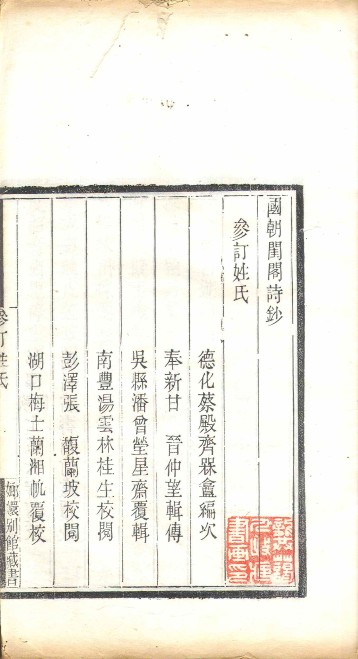 國朝閨閣詩鈔
參訂姓氏
德化蔡殿齊眾盦編次
奉新甘 晉仲望輯傳
吳縣潘曾瑩星齋覆輯
南豐湯雲林桂生校閱
彭澤張 馥蘭坡校閱
湖口梅士蘭湘帆覆校
參訂姓氏
嫏嬛別館藏書
書画